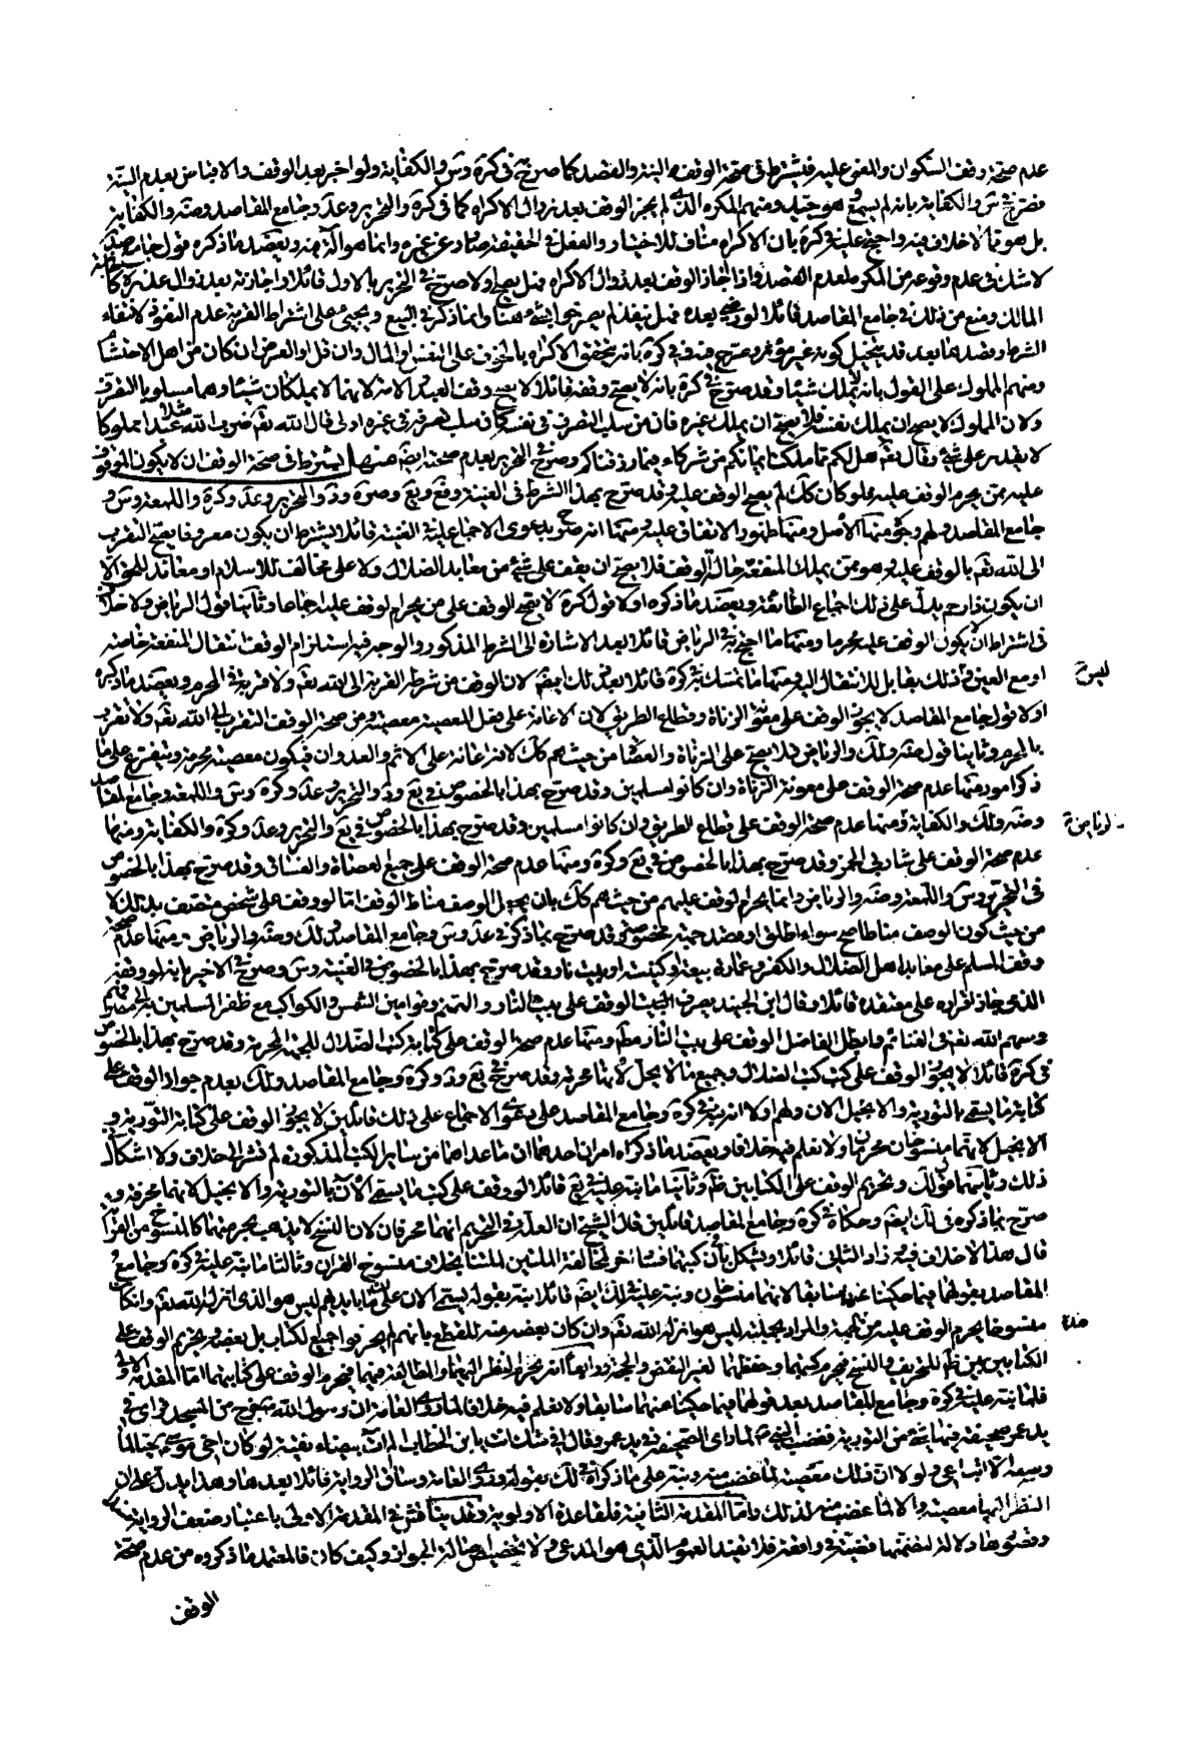 عدم صحة وقف السكوان والمغمى عليه فيشترط فى صحة الوقف النية والقصد كما صرح به فى كرة وس والكفاية ولو اخبر بعد الوقف والاقباض بعدم النية
فصرح فى س والكفاية بانه لم يسمع وهو جيد ومنهم المكره الذى لم يجز الوقف بعد زوال الاكراه كما فى كرة والتحرير وعد وجامع المقاصد وضه والكفاية
بل هو مما لا خلاف فيه واحتج عليه فى كرة بان الاكراه مناف للاختيار والفعل فى الحقيقة صادر عن غيره وانما هو آلة فيه ويعضد ما ذكره قول جامع صد
لا شك فى عدم وقوعه من المكره لعدم القصد واذا اجاز الوقف بعد زوال الاكراه فهل يصح او لا صرح فى التحرير بالاول قائلا واجازته بعد زوال عذره كا
المالك ومنع من ذلك فى جامع المقاصد قائلا لو رضى بعده فهل ينفذ لم يصرحوا بشئ هنا وانما ذكر فى البيع ويجئ على اشتراط القربة عدم النفوذ لانتفاء
الشرط وقصدها بعد قد يتخيل كونه غير مؤثر وصرح فى كرة بانه يتحقق الاكراه بالخوف على النفس او المال وان قل او العرض ان كان من اهل الاحتشام
ومنهم المملوك على القول بانه لا يملك شيئا وقد صرح فى كرة بانه لا يصح وقفه قائلا لا يصح وقف العبد والامة لانهما لا يملكان شيئا وهما مسلوبا التصرف
ولان المملوك لا يصح ان يملك نفسه فلا يصح ان يملك غيره فان من سلب التصرف فى نفسه كان سلب تصرفه فى غيره اولى قال الله تعم ضرب الله مثلا عبدا مملوكا
لا يقدر على شئ وقال تعم هل لكم مما ملكت ايمانكم من شركاء فيما رزقناكم وصرح فى التحرير بعدم صحته ايضا منهل يشترط فى صحة الوقف ان لا يكون الموقوف
عليه ممن يحرم الوقف عليه فلو كان كك لم يصح الوقف عليه وقد صرح بهذا الشرط فى الغنية وقع ويع وصره ود والتحرير وعد وكرة واللمعة وس و
جامع المقاصد ولهم وجوه منها الأصل ومنها ظهور الاتفاق عليه ومنها انه صرح بدعوى الاجماع عليه فى الغنية قائلا يشترط ان يكون معروفا يصح التقرب
الى الله تعم بالوقف عليه وهو ممن يملك المنفعة حال الوقف فلا يصح ان يقف على شئ من معابد الضلال ولا على مخالف للاسلام او معاند للحق الا
ان يكون ذا رحم يدل على ذلك اجماع الطائفة ويعضد ما ذكره اولا قول كرة لا يصح الوقف على من يحرم الوقف عليه اجماعا وثانيا قول الرياض ولا خلاف
فى اشتراط ان لا يكون الوقف عليه محرما ومنها ما احتج به فى الرياض قائلا بعد الاشارة الى الشرط المذكور والوجه فيه استلزام الوقف انتقال المنفعة خاصة
ليس
او مع العين وذلك بقابل للانتقال اليه ومنها ما تمسك به فى كرة قائلا بعد ذلك ايضا لان الوقف من شرطه القربة الى الله تعم ولا قربة فى المحرم ويعضد ما ذكره
اولا قول جامع المقاصد لا يجوز الوقف على معونة الزناة وقطاع الطريق لان الاعانة على فعل المعصية معصية ومن صحة الوقف التقرب الى الله تعم ولا تقرب
بالمحرم وثانيا قول ضه ولك والرياض فلا يصح على الزناة والعصاة من حيث هم كك لانه اعانة على الاثم والعدوان فيكون معصية محرمة ويتفرع على ما
ذكر امور منها عدم صحة الوقف على معونة الزناة وان كانوا مسلمين وقد صرح بهذا بالخصوص فى يع ود والتحرير وعد وكرة وس واللمعة وجامع المقاصد
وضه ولك والكفاية ومنها عدم صحة الوقف على قطاع الطريق وان كانوا مسلمين وقد صرح بهذا بالخصوص فى يع والتحرير وعد وكرة والكفاية ومنها
عدم صحة الوقف على شاربى الخمر وقد صرح بهذا بالخصوص فى يع وكرة ومنها عدم صحة الوقف على جميع العصاة والفساق وقد صرح بهذا بالخصوص
فى التحرير وس واللمعة وضه والرياض وانما يحرم الوقف عليهم من حيث هم كك بان يجعل الوصف مناط الوقف اما لو وقف على شخص متصف بذلك لا
من حيث كون الوصف مناطا صح سواء اطلق او قصد جهة محضة وقد صرح بما ذكر فى عد وس وجامع المقاصد ولك وضه والرياض ومنها عدم صحة
وقف المسلم على معابد اهل الضلال والكفر من عمارة بيعة او كنيسة او بيت نار وقد صرح بهذا بالخصوص فى الغنية وس وصرح فى الاخير بانه لو وقفه
الذمى جاز اقراره على معتقده قائلا وقال ابن الجنيد يصرف الوقف على بيت النار والصنم وقرابين الشمس والكواكب مع ظفر المسلمين به
وسهم الله تعم فى الغنائم وابطل الفاضل الوقف على بيت النار مطلقا ومنها عدم صحة الوقف على كتابة كتب الضلال للجهة المحرمة وقد صرح بهذا بالخصوص
فى كرة قائلا لا يجوز الوقف على كتب كتب الضلال وجميع ما لا يحل لانها محرمة وقد صرح فى يع ود وكرة وجامع المقاصد ولك بعدم جواز الوقف على
كتابة ما يسمى بالتورية والانجيل الان ولهم اولا انه ادعى فى كرة وجامع المقاصد على دعوى الاجماع على ذلك قائلين لا يجوز الوقف على كتابة التورية و
الانجيل لانهما منسوخان محرفان ولا نعلم فيه خلافا ويعضد ما ذكراه امران احدهما ان ما عداهما من سائر الكتب المذكورة لم نشر الى خلاف ولا اشكال
ذلك وثانيهما قول لك وتحريم الوقف على الكتابين ظم وثانيا ما نبه عليه فى يع قائلا لو وقف على كتب ما يسمى الآن بالتورية والانجيل لانهما محرفة وبه
صرح بما ذكره فى لك ايضا وحكاه فى كرة وجامع المقاصد قائلين قال الشيخ ان العلة فى التحريم انهما محرفان لان النسخ لا يذهب بحرمتهما كالمنسوخ من القرآن
قال هذا لا خلاف فيه زاد الثانى قائلا ويشكل بأن كتبهما فسادا اخر لمخالفة الملتين لملتنا بخلاف منسوخ القرآن وثالثا ما نبه عليه فى كرة وجامع
المقاصد بقولهما فيما حكينا عنهما سابقا لانهما منسوخان ونبه عليه فى لك ايضا قائلا نبه بقوله يسمى الان على ان ما بايديهم ليس هو الذى انزله الله تعم وان كان
منسوخا يحرم الوقف عليه من جهة والمراد بجملته ليس هو ما انزله الله تعم وان كان بعضه منه للقطع بانهم لم يحرفوا جميع الكتاب بل بعضه وتحريم الوقف على
الكتابين من ظم للتحريف والنسخ فيحرم كتبهما وحفظهما لغير النقض والحجة ورابعا انه يحرم النظر اليهما والمطالعة فيهما فيحرم الوقف على كتابتهما اما المقدمة الاولى
فلما نبه عليه فى كرة وجامع المقاصد بعد قولهما فيما حكينا عنهما سابقا ولا نعلم فيه خلافا لما روى العامة ان رسول الله خرج من المسجد فراى فى
يد عمر صحيفة فيها شئ من التورية فغضب النبى لما راى الصحيفة فى يد عمر وقال افى شك انت يابن الخطاب الم آت بها بيضاء نقية لو كان اخى موسى حيا لما
وسعه الا اتباعى ولولا ان ذلك معصية لما غضب منه ونبه على ما ذكراه فى لك بقوله وقد روى العامة وساق الرواية قائلا بعدها وهذا يدل على ان
النظر اليها معصية والا لما غضب منه لذلك واما المقدمة الثانية فلقاعدة الاولوية وقد يناقش فى المقدمة الاولى باعتبار ضعف الرواية
وقصورها دلالة لتضمنها قضية فى واقعة فلا تفيد العموم الذى هو المدعى ولا تخصيص اصالة الجواز وكيف كان فالمعتمد ما ذكروه من عدم صحة
الوقف